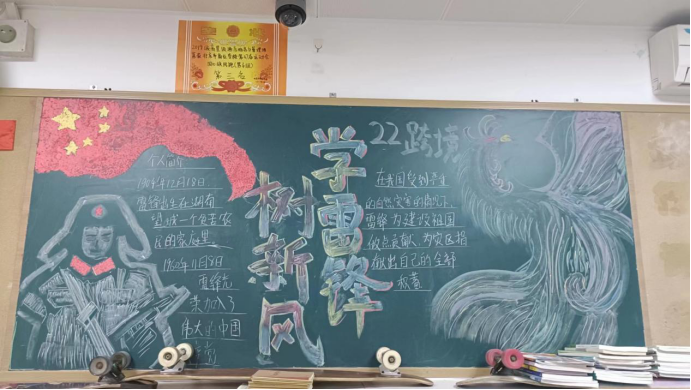 第三名
22跨境
学雷锋
树新风
个人简介
1940年12月18日
雷锋出生在湖南
望城一个贫苦农
民的家庭里
1960年11月8日
雷锋光
荣加入了
伟大的中国
在我国受到严重
的自然灾害的情况下,
雷锋为建设祖国
做点贡献,为灾区捐
献出自己的全部
积蓄